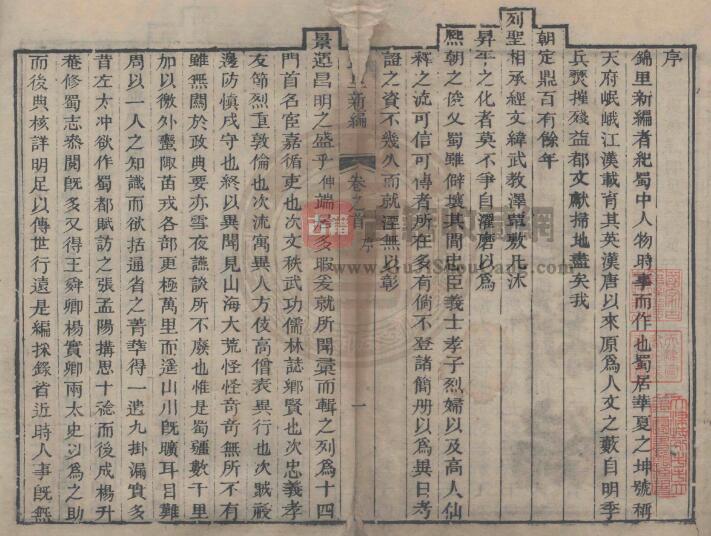 序
錦里新編者紀蜀中人物時事而作也蜀居華夏之坤號稱
天府岷峨江漢載育其英漢唐以來原為人文之藪自明季
兵燹摧殘益都文獻掃地盡矣我
朝定鼎百有餘年
列聖相承經文緯武教澤覃敷凡沐
昇平之化者莫不爭自濯磨以為
熙朝之俊乂蜀雖僻壤其間忠臣義士孝子烈婦以及高人仙
釋之流可信可傳者所在多有倘不登諸簡册以為異日考
證之資不幾久而就湮無以彰
新編
卷之首
序
一
景運昌明之盛乎伸端居多暇爰就所聞彙而輯之列為十四
門首名宦嘉循吏也次文秩武功儒林誌鄉賢也次忠義孝
友節烈重敦倫也次流寓異人方伎高僧表異行也次賊祲
邊防慎戎守也終以異聞見山海大荒怪怪奇奇無所不有
雖無關於政典要亦雪夜讌談所不廢也惟是蜀疆數千里
加以徼外蠻陬苗戎各部更極萬里而遥山川旣曠耳目難
周以一人之知識而欲括通省之菁華得一遺九掛漏實多
昔左太冲欲作蜀都賦訪之張孟陽搆思十稔而後成楊升
菴修蜀志泰閱旣多又得王舜卿楊實卿兩太史以為之助
而後典核詳明足以傳世行遠是編採錄省近時人事旣無
古籍
www.GuJiShouCang.com